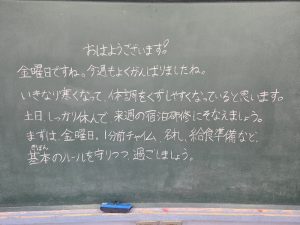 おはようございます!
金曜日ですね。今週もよくがんばりましたね。
いきなり寒くなって、体調をくずしやすくなっていると思います。
土日、しっかり休んで、来週の宿泊研修にそなえましょう。
まずは、金曜日。1分前チャイム、名札、給食準備など、
基本のルールを守りつつ、過ごしましょう。
きほん